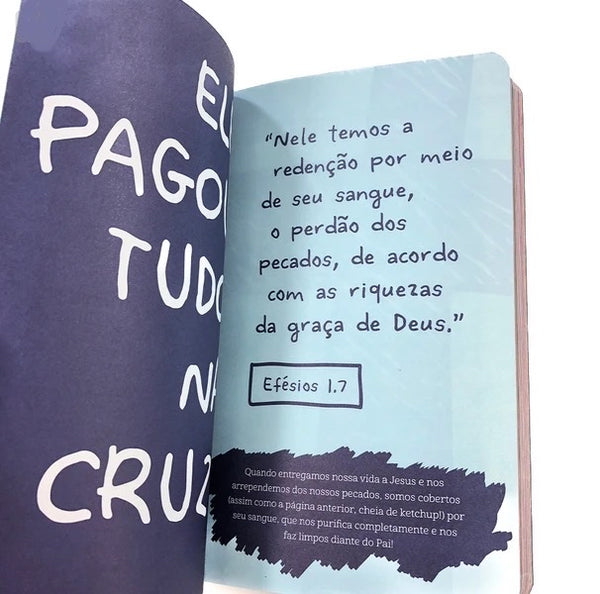 EU
PAGOU
TUDO
NA
CRUZ
“Nele temos a
redenção por meio
de seu sangue,
o perdão dos
pecados, de acordo
com as riquezas
da graça de Deus.”
Efésios 1.7
Quando entregamos nossa vida a Jesus e nos
arrependemos dos nossos pecados, somos cobertos
(assim como a página anterior, cheia de ketchup!) por
seu sangue, que nos purifica completamente e nos
faz limpos diante do Pai!